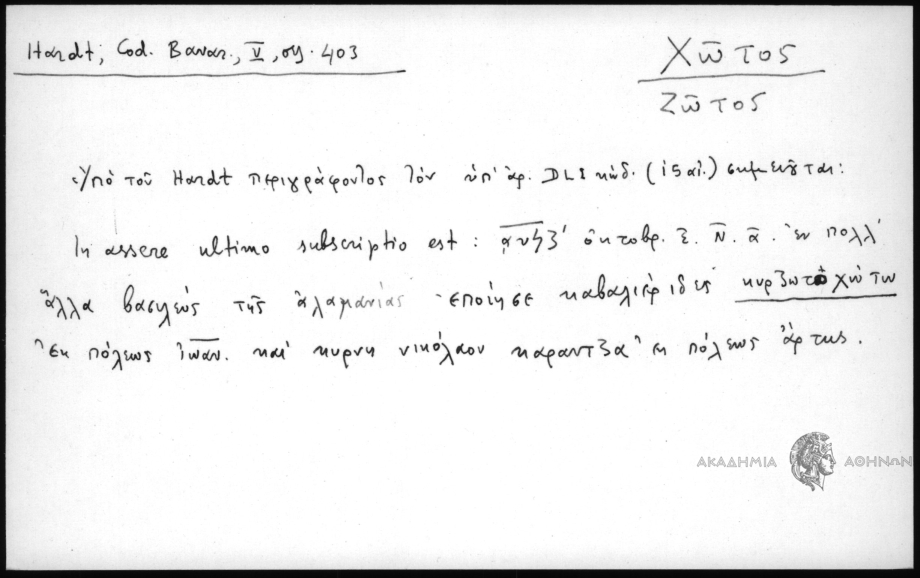 Hardt, Cod. Bavar., V, σγ. 403
Χῶτος
Ζῶτος
Ὑπὸ τοῦ Hardt περιγράφοντος τὸν ὑπ' ἀρ. DLI κώδ. (ις αἰ.) σημειοῦται:
In assere ultimo subscriptio est : ὀκτοβρ. ε̄. Ν̄. ᾱ. ἐν πολλ'
ἄλλα βασιλεὺς τῆς ἀλαμανίας ἐποίησε καβαλιέριδες κυρζωτο χώτω
ἐκ πόλεως ἰωαν. καὶ κυρνη νικόλαον καραντζα ἐκ πόλεως ἄρτης.
ΑΚΑΔΗΜΙΑ ΑΘΗΝΩΝ